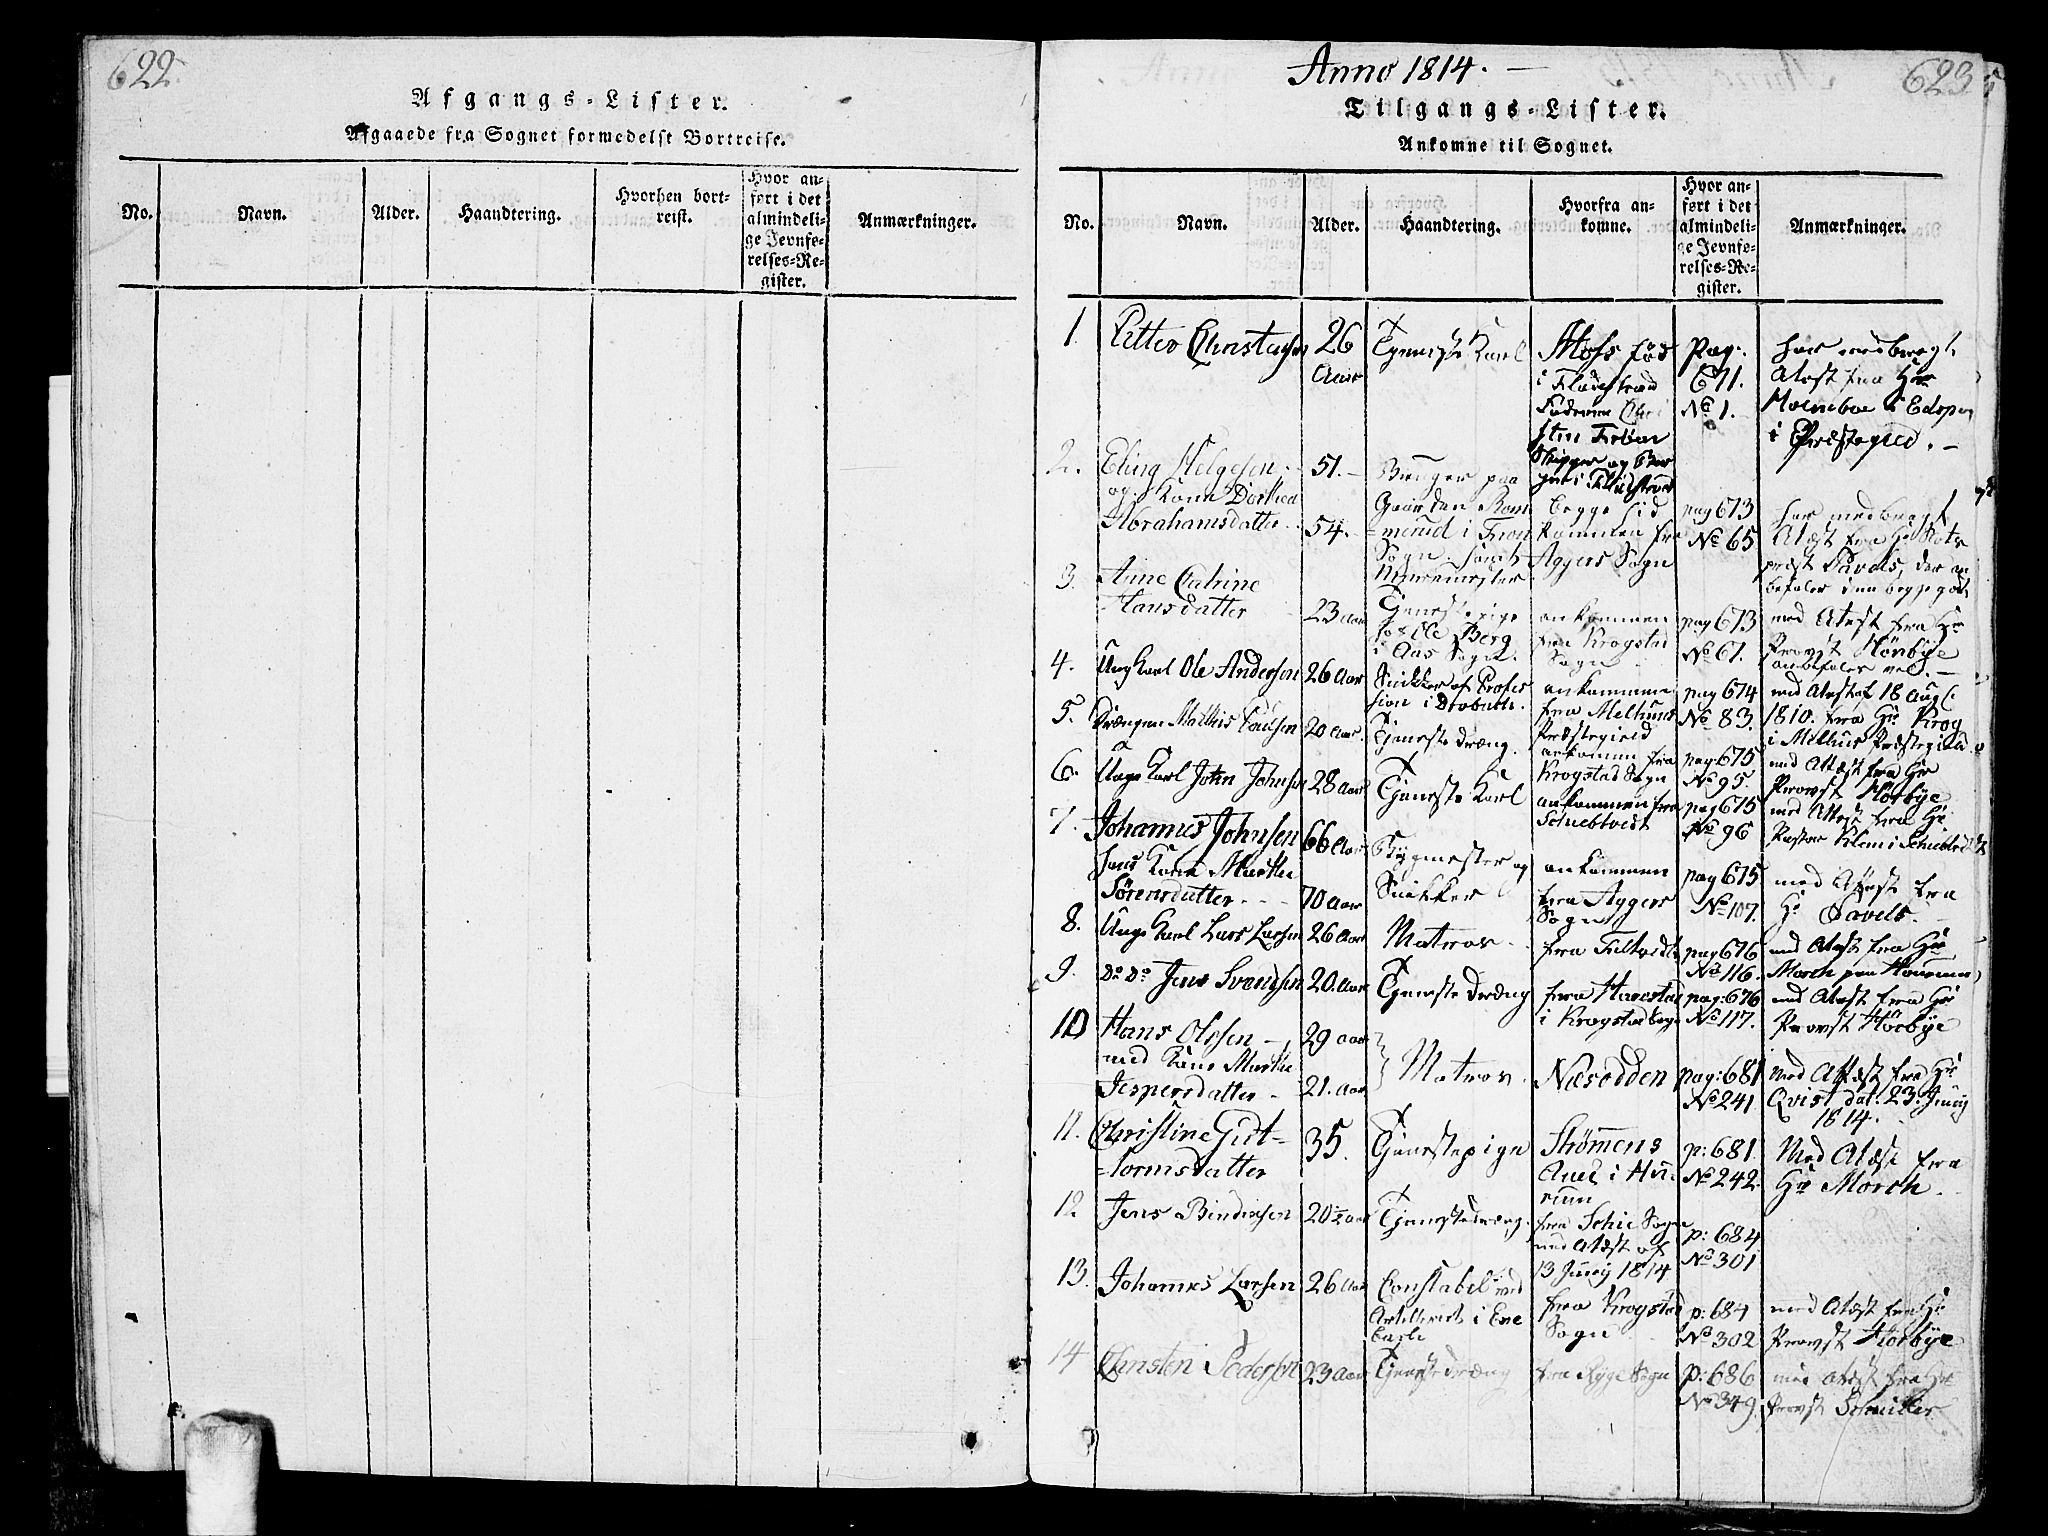 622.
Afgangs-Lister.
Afgaaede fra Sognet formedelst Bortreise.
No.
Navn.
Alder.
Haandtering.
Hvorhen bort-
reist.
Hvor an-
ført i det
almindeli-
ge Jevnfø-
relses-Re-
gister.
Anmærkninger.
Anno 1814.
623
Tilgangs-Lister.
Ankomne til Sognet.
No.
Navn.
Alder.
Haandtering.
Hvorfra an-
komne.
Hvor an-
ført i det
almindeli-
ge Jevnfø-
relses-Re-
gister.
Anmærkninger.
1.
Petter Christensen
26
Aar
Tjeneste Karl
Moss fød
i Fladstrand
Faderen
pag.
671.
No 1.
har medbragt
Atest fra Hr
i Præstegield.
2.
Eling Helgesen
og Kone Dorthea
Abrahamsdatter
51.
54.
Bruger paa
Gaarden Rom
merud i Fron
Sogn samt
Muremester
begge
kommen fra
Aggers Sogn
pag 673
No 65
har medbragt
Atæst fra Hr
præst Pavels, der an
befaler dem begge godt
3.
Anne Catrine
Hansdatter
23 Aar
Tjenestepige
Ole Berg
i Aas Sogn.
ankommen
fra Krogstad
Sogn
pag 673
No 67.
med Atest fra Hr
Provst Hörbye
anbefales vel.
4.
Ung Karl Ole Andersen
26 Aar
Snikker af Profes
sion i Drøbach.
ankommen
fra Melhuus
Præstegield
pag 674
No 83.
med Atest af 18 Aug
1810. fra Hr Krog
i Melhus Præstegield.
5.
Drengen Mathis Poulsen
20 Aar.
Tjeneste Dreng.
ankommen fra
Krogstad Sogn
pag: 675
No 95.
med Attest fra Hr
Provst Hörbye
6.
Unge Karl John Johnsen
28 Aar
Tjeneste Karl
ankommen fra
Schiebtvedt
pag 675
No 96
med Attest fra Hr
Pastor Klem i Schiebtvedt
7.
Johannes Johnsen
hans Kone Marthe
Sörensdatter
66 Aar
70 Aar
Bygmester og
Snikker
ankommen
fra Aggers
Sogn
pag 675
No 107.
med Atest fra
Hr Pavels.
8.
Unge Karl Lars Larsen
26 Aar
Matros
fra Feltvedt
pag 676
No 116.
med Atest fra Hr
Morch paa Hourum
9.
Do Do Jens Svendsen
20. Aar
Tjeneste Dreng
fra Harestad
i Krogstad Sogn
pag: 676
No 117.
med Atest fra Hr
Provst Hörbye
10
Hans Olsen
med Kone Marthe
Jespersdatter
29 Aar
21. Aar
Matros.
Næsodden
pag: 681
No 241
Med Attest fra Hr
Qvist dat. 23. Juny
1814.
11.
Christine Gut-
tormsdatter
35.
Tjenestepige
Strömens
i Hu
rum
p: 681.
No 242.
Med Atest fra
Hr Morch.
12.
Jens Bendixsen
20 1/2 Aar
Tjenestedreng.
fra Schie Sogn
med Atest af
13 Juny 1814
p: 684
No 301
13.
Johannes Larsen
26 Aar
Constabel ved
Artilleriet i
fra Krogstad
Sogn
p: 684
No 302
med Atest fra Hr
Provst Hörbye
14
Christen Pedersen
23 Aar
Tjenestedreng
fra Rygge Sogn
p: 686
No 349
med Atest fra Hr
Provst